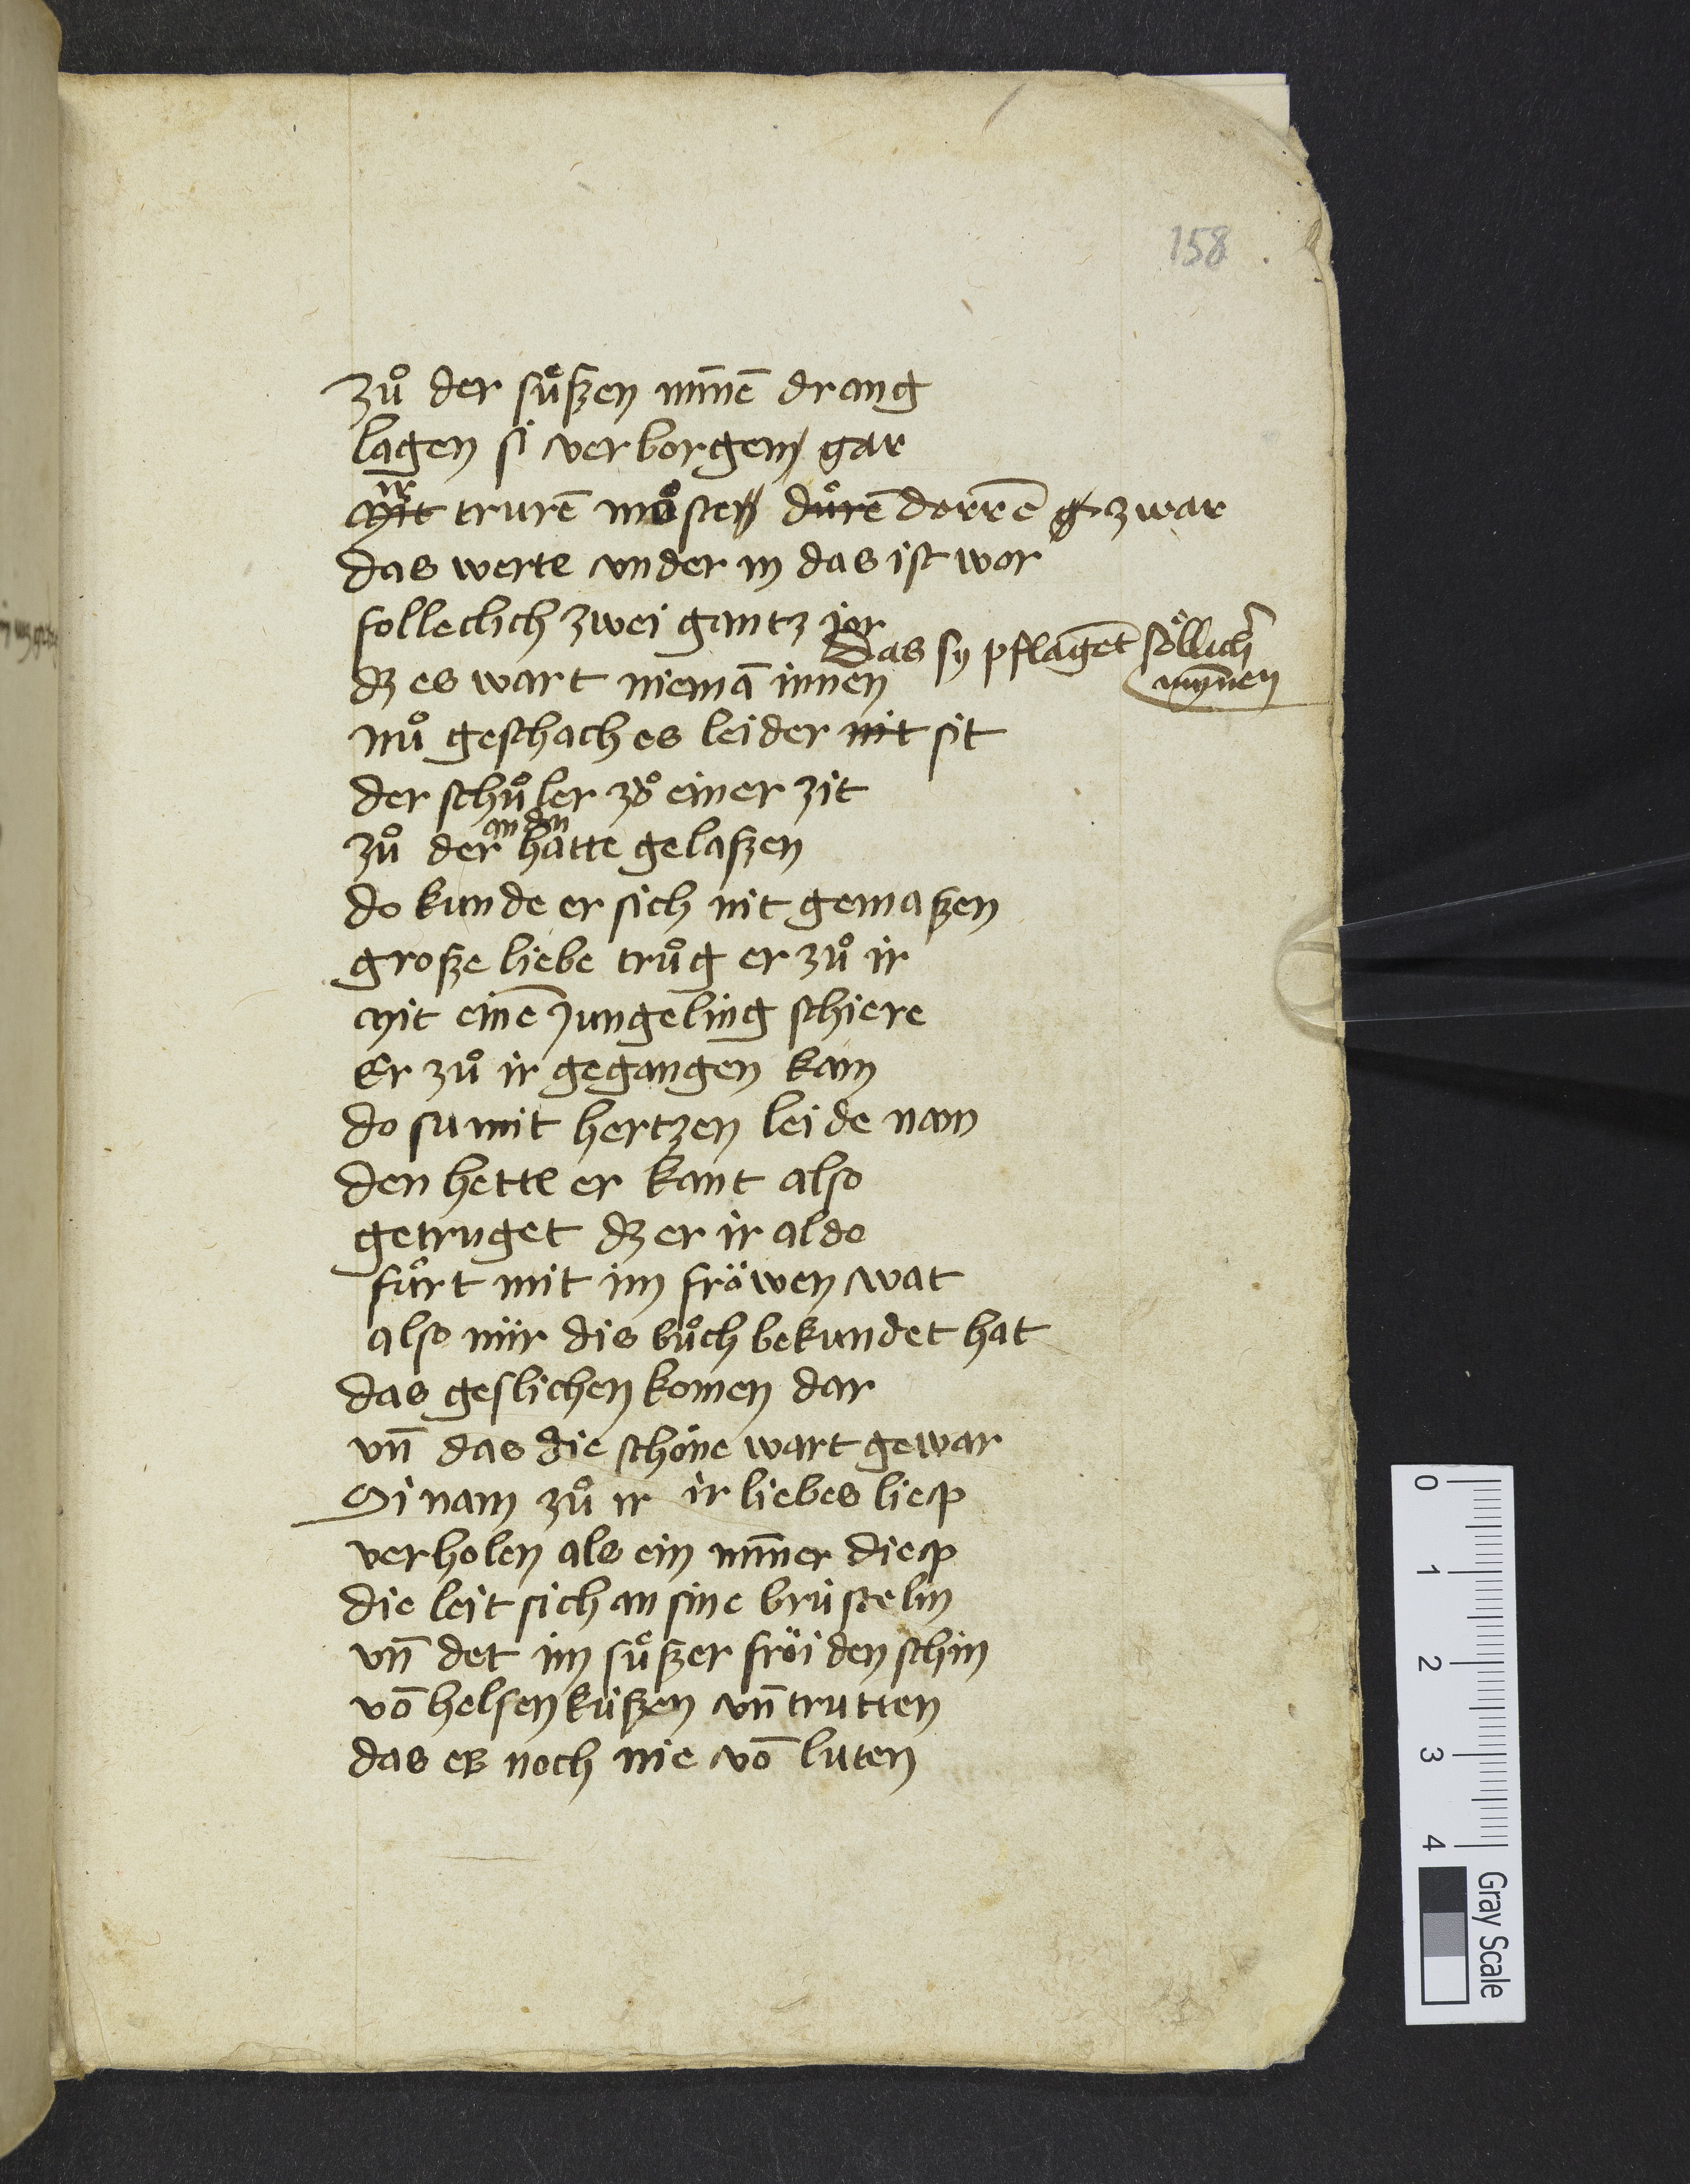 158
zuͦ der suͤßen mīnē drang
lagen si verborgen gar
ir
mit trurē moͤsten duͦrē dorrē g zwar
das werte vnder in das ist wor
folleclich zwei gantz jor
das sy pflagēt soͤllich̄
dz es wart niemā innen
mynnen
nuͦ geschach es leider nit sit
der schuͦler zoͧ einer zit
an den
zuͦ der hatte gelaßen
do kunde er sich nit gemaßen
große liebe truͦg er zuͦ ir
mit einē jungeling schiere
Er zuͦ ir gegangen kam
do su mit hertzen leide nam
den hette er kant also
getruget dz er ir aldo
fuͦrt mit im fröwen wat
also mir dis buͦch bekundet hat
das geslichen komen dar
vn̄ das die schöne wart gewar
Si nam zuͦ ir ir liebes liep
verholen als ein mīner diep
die leit sich an sine brüstelin
vn̄ det im suͤßer fröiden schin
vō helsen küßen vn̄ trutten
das es noch nie vō luten
0
1
2
3
4
Gray Scale